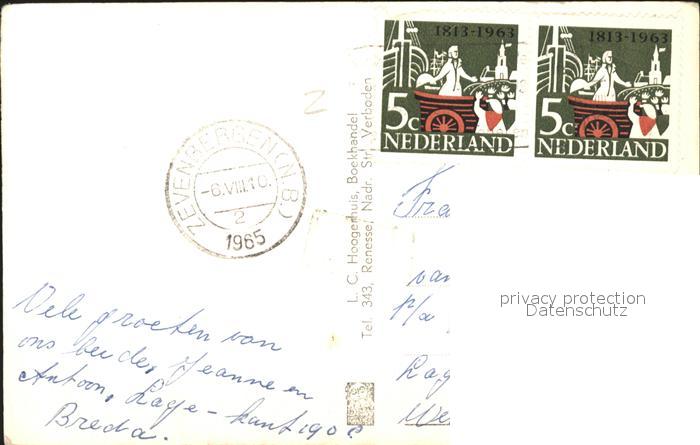 1813-1963
5c
NEDERLAND
1813-1963
5c
NEDERLAND
ZEVENBERGEN (N.B.)
-6.VIII.10.
2
1965
L. C. Hoogerhuis, Boekhandel
Tel. 343, Renesse, Nadr. Str. Verboden
Fra
van
p/a
Lag
We
privacy protection
Datenschutz
Vele groeten van
ons beide, Jeanne en
Antoon, Lage-kant
Breda.